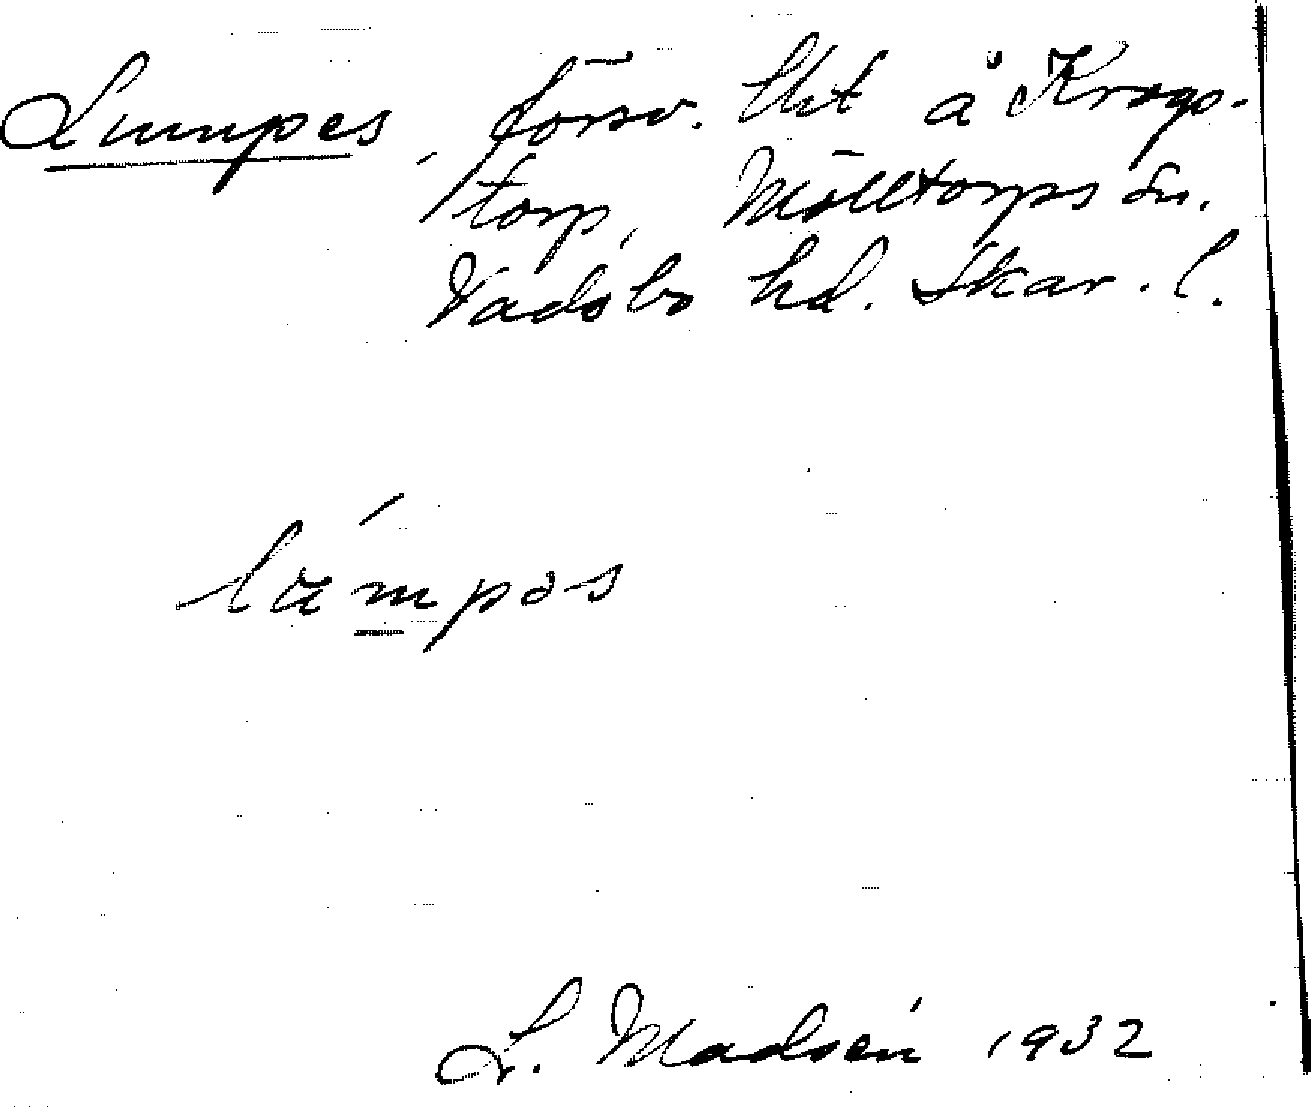 Lumpes, försv. lht å Krogs-
torp, Mölltorps sn.
Vadsbo hd. Skar. l.
L. Madsén 1932